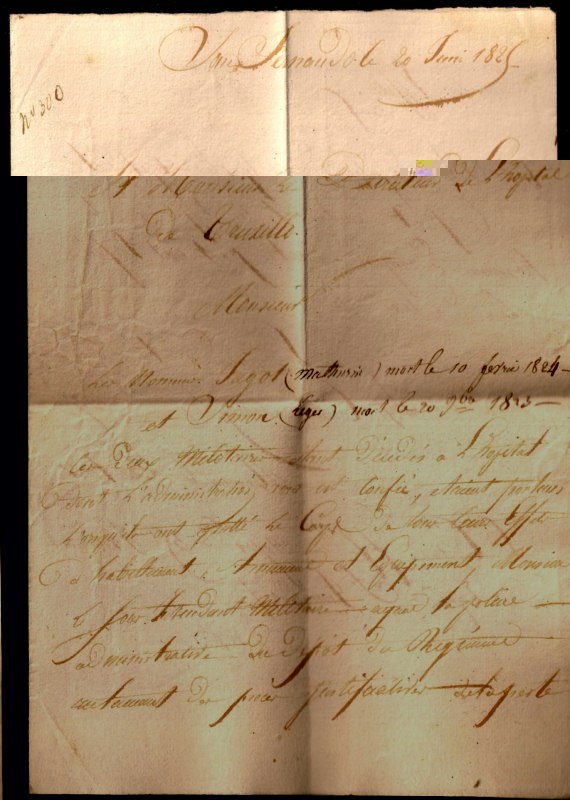 San Fernando le 20 Juin 1825
No 300
A Monsieur le Directeur de L'hopital
de Truxille.
Monsieur
Les Nommés Jagot (mathurin) mort le 10 fevrier 1824
et Simon (leger) mort le 20 9bre 1823
ces deux Militaires sont Décédés à L'hopital
dont L'administration vous est confiée, etaient porteurs
Lorsquils ont quitté le Corps de tous leurs Effets
d'habillement, Armement et Equipement. Monsieur
le Sous Intendant Militaire ayant la police
administrative du Dépôt du Régiment
de pieces justificatives de la perte